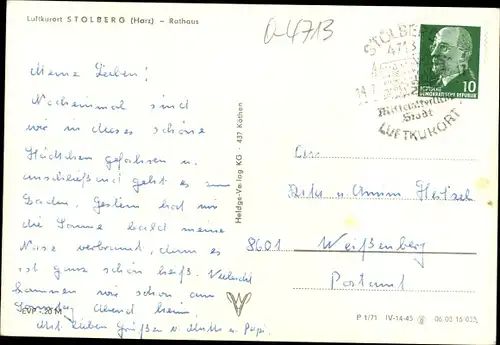 Luftkurort STOLBERG (Harz) – Rathaus
a-4713
Meine Lieben!
Nocheinmal sind
wir in dieses schöne
Städtchen gefahren u.
anschließend geht es zum
Baden. Gestern hat mir
die Sonne bald meine
Nase verbrannt, denn es
ist ganz schön heiß. Vielleicht
kommen wir schon am
Sonntag Abend heim.
Mit lieben Grüßen v. Mutti u. Papi.
EVP -,20 M
Heldge-Verlag KG · 437 Köthen
STOLBERG
4713
Mittelalterliche
Stadt
LUFTKURORT
DEUTSCHE
DEMOKRATISCHE REPUBLIK
10
An
u.
8601 Weißenberg
Postamt
P 1/71 IV-14-45 06 03 16 035